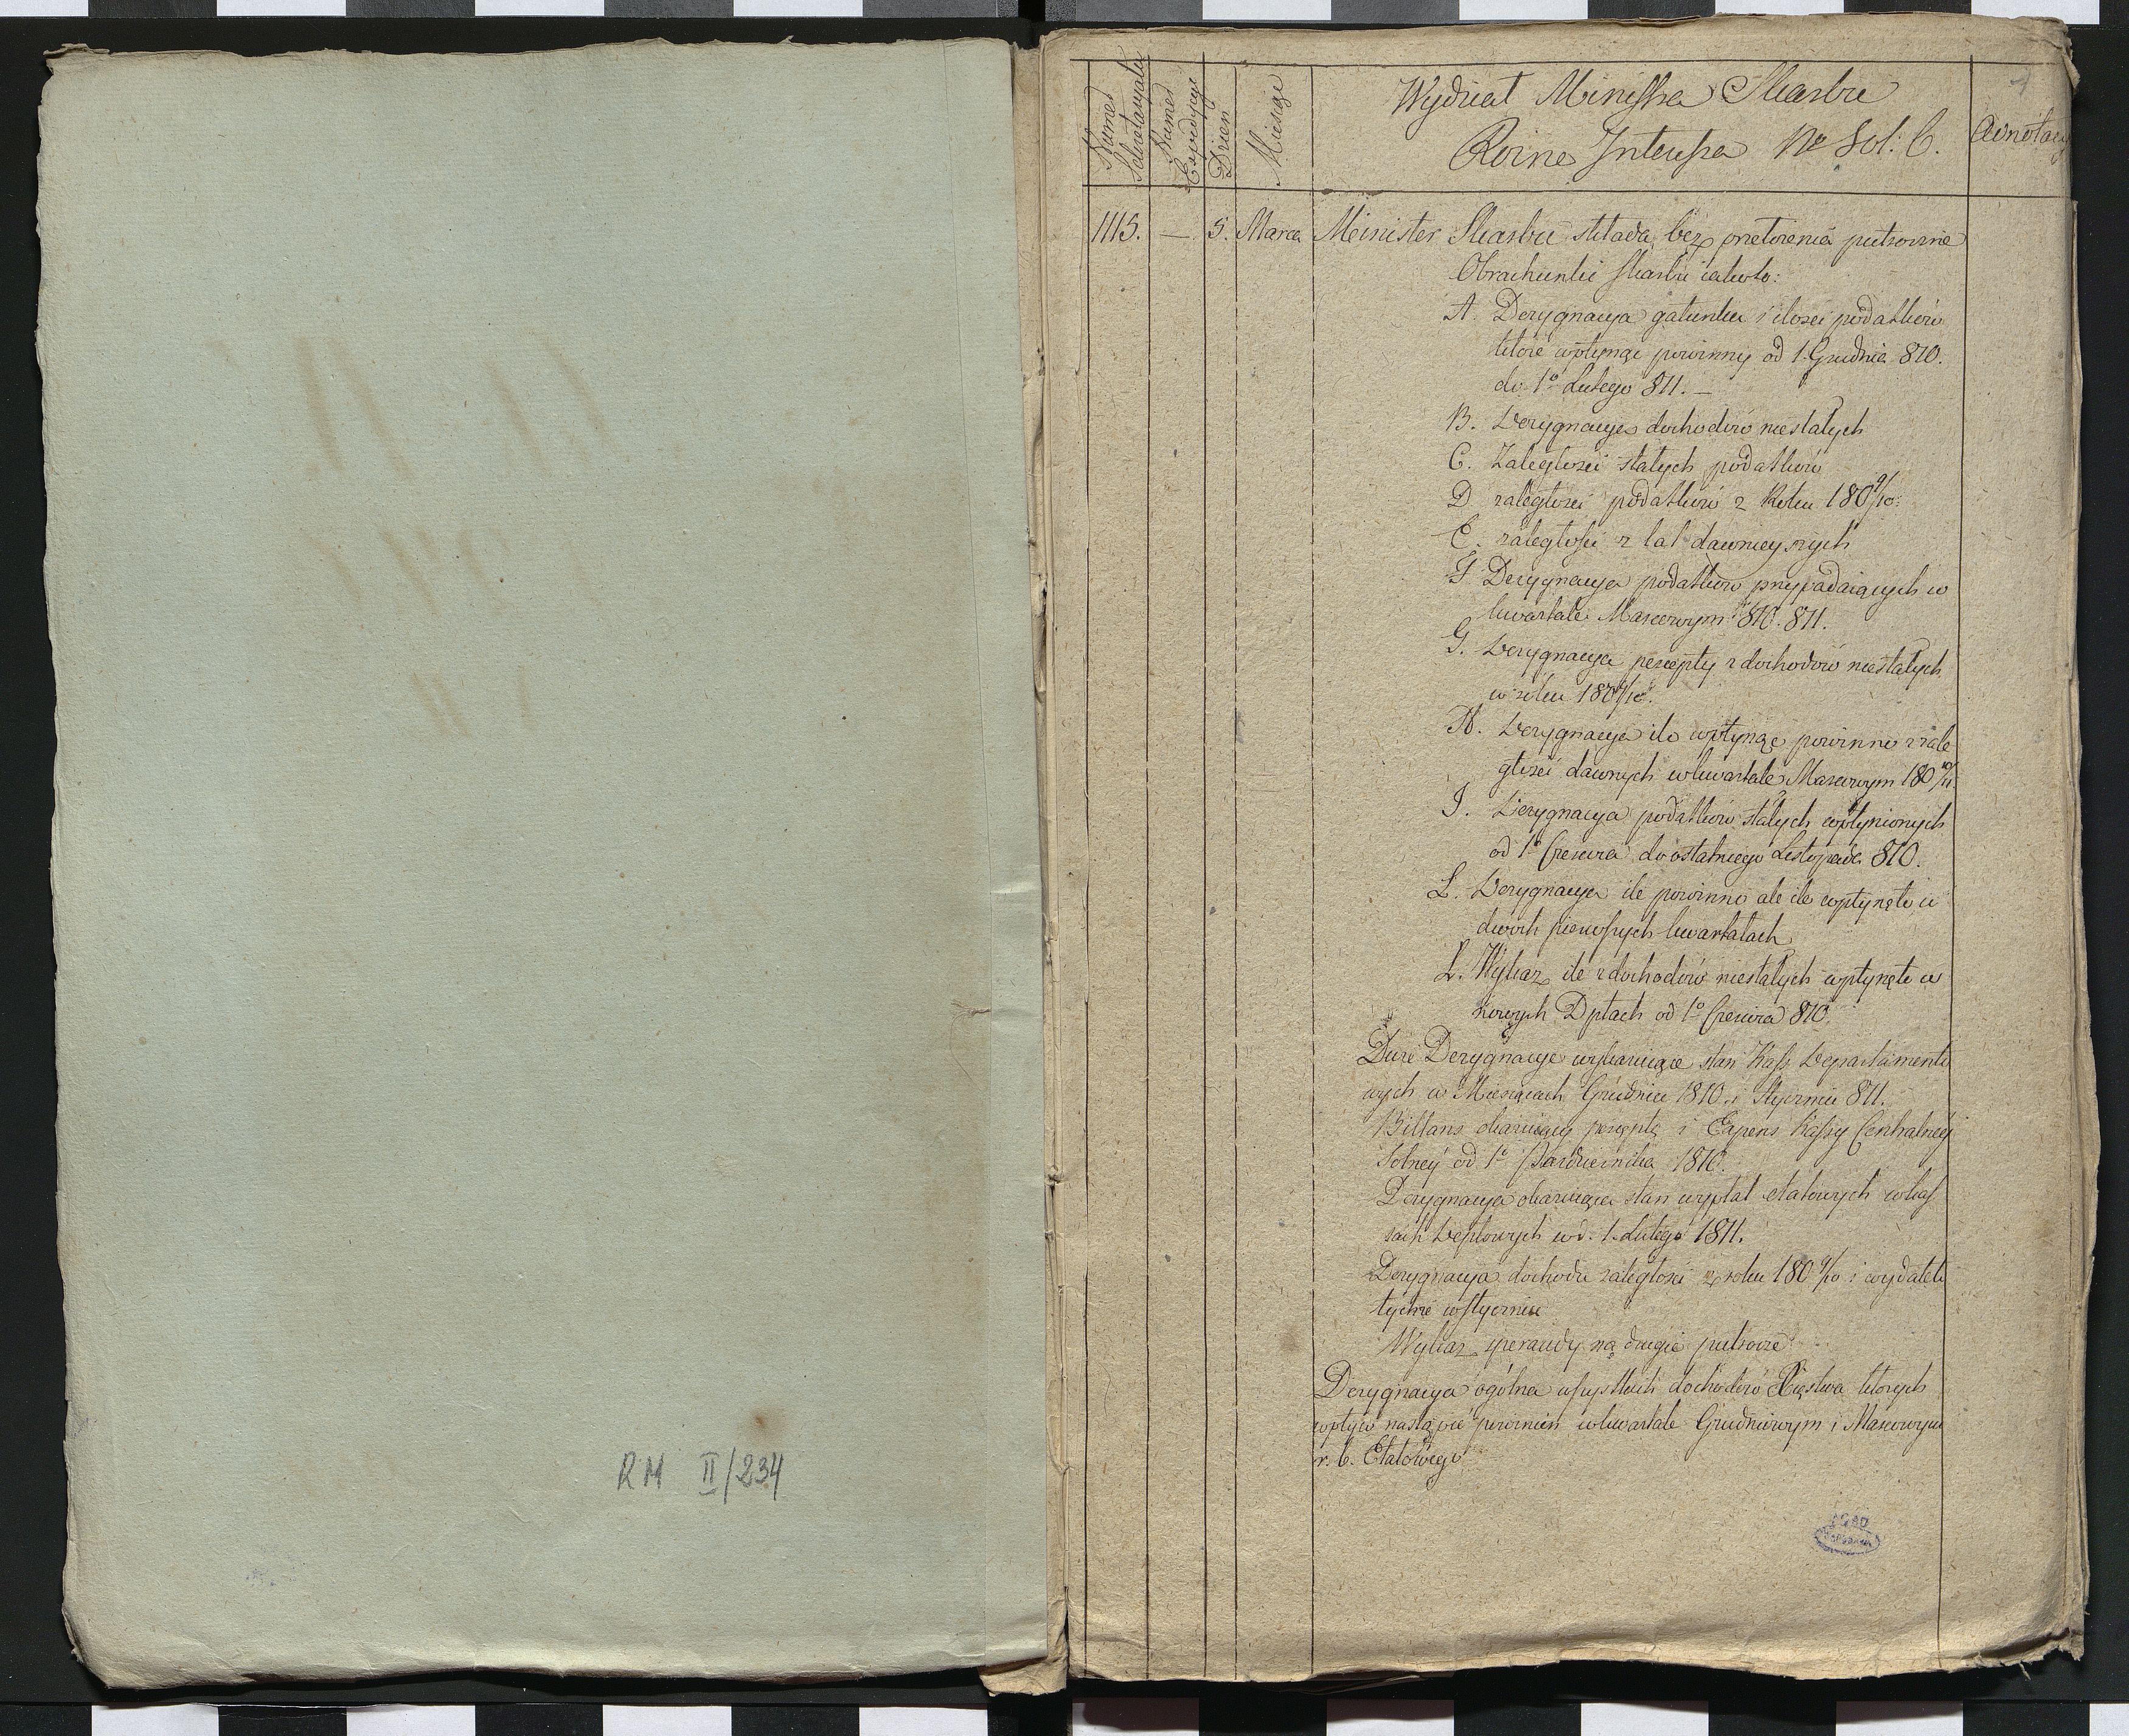 RM II/234
Numer Sekretaryatu
Numer Expedycyi
Dzien
Miesiąc
Wydział Ministra Skarbu
Rożne Interessa No Sol: 6.
Adnotacy
1115. — 5. Marca Minister Skarbu składa bez przełożenia półroczne
Obrachunki Skarbu iakoto:
A. Dezygnacya gatunku i ilości podatków
które wpłynąć powinny od 1. Grudnia 810.
do 1o Lutego 811. —
B. Dezygnacye dochodów niestałych
C. Zaległości stałych podatków
D zaległości podatków z Roku 180 9/10.
E. zaległości z lat dawnieyszych
F Dezygnacya podatków przypadaiących w
kwartale Marcowym 810. 811.
G. Dezygnacya percepty z dochodów niestałych
w roku 180 9/10.
H. Dezygnacya ile wpłynąć powinno z zale
głości dawnych w kwartale Marcowym 180 10/11
I. Dezygnacya podatków stałych wpłynionych
od 1o Czerwca do ostatniego Listopada 810.
L. Dezygnacya ile powinno ale ile wpłynęło w
dwóch pierwszych kwartałach
L. Wykaz ile z dochodów niestałych wpłynęło w
nowych Dptach od 1o Czerwca 810.
Dwie Dezygnacye wykazuiące stan Kass Departamento
wych w Miesiącach Grudniu 1810. i Styczniu 811.
Billans okazuiący perceptę i Expens Kassy Centralney
Solney od 1o Października 1810.
Dezygnacya okazuiąca stan wypłat etatowych w kas
sach Deptowych w d. 1. Lutego 1811.
Dezygnacya dochodu zaległości z roku 180 9/10 i wydatek
tychże w styczniu
Wykaz sperandy na drugie półrocze
Dezygnacya ogólna wszystkich dochodów Xięstwa których
wpływ nastąpić powinien w kwartale Grudniowym i Marcowym
r. b. Etatowego
AGAD